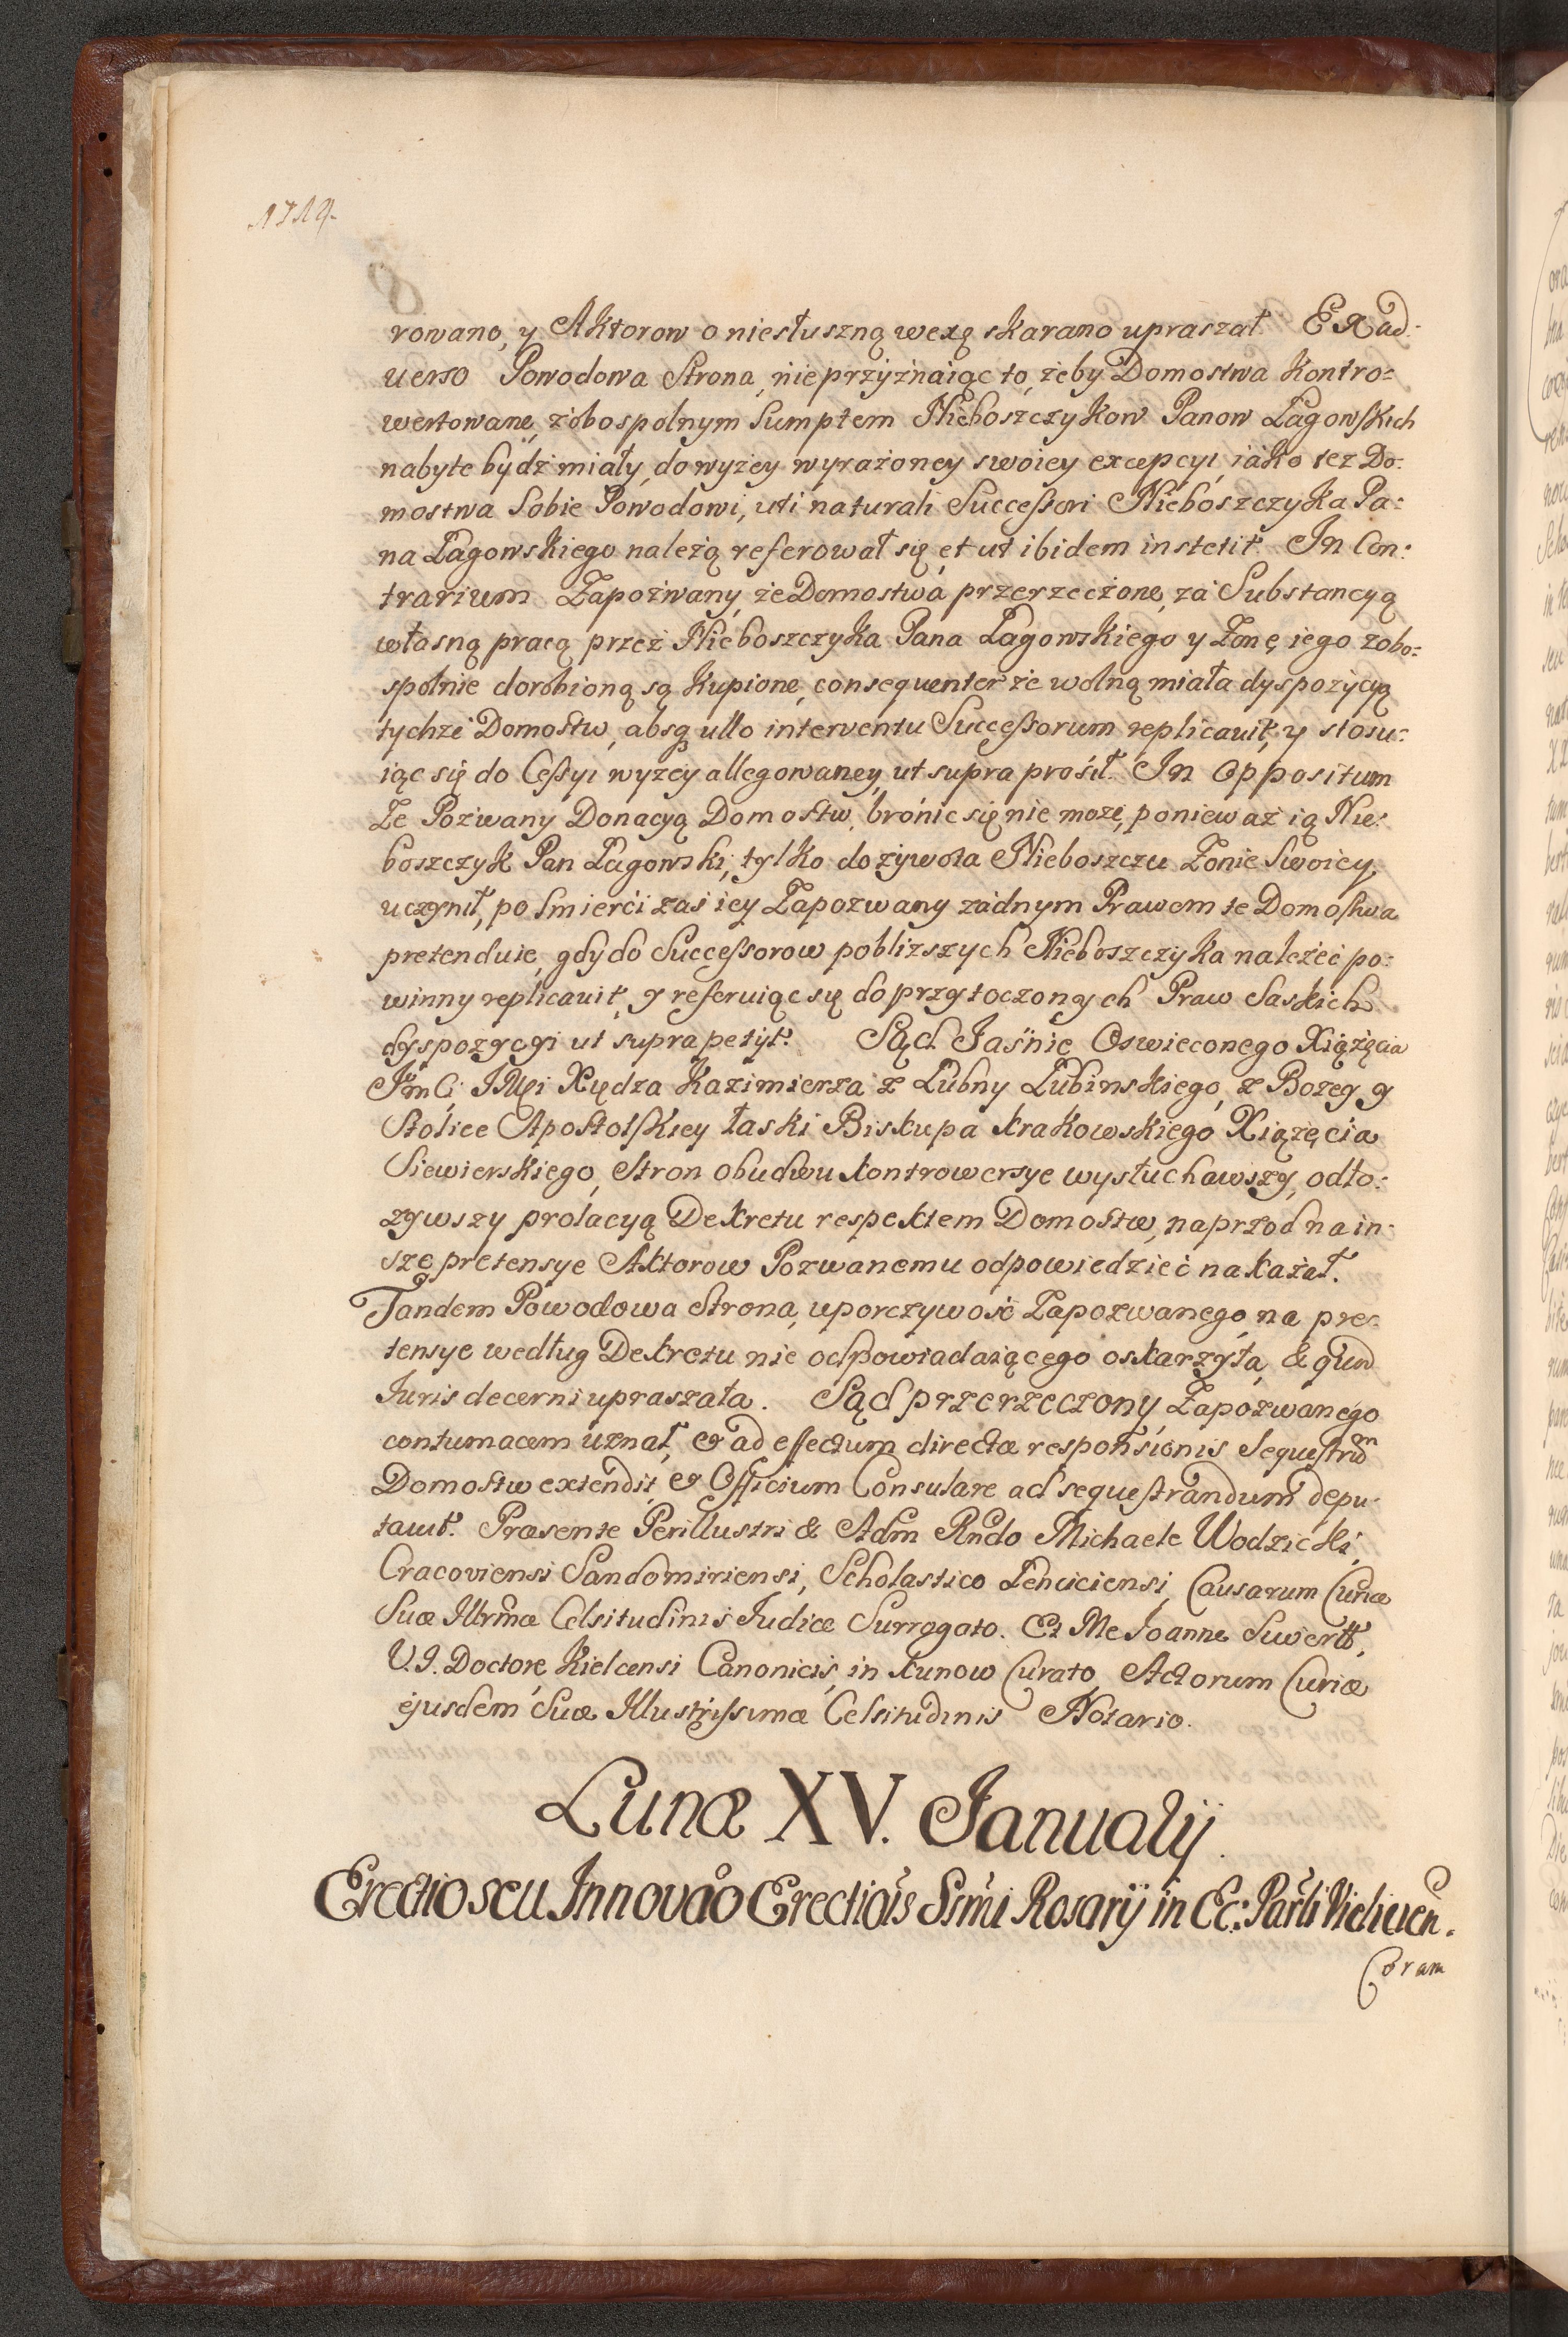 1714.
rowano, y Aktorow o niesłuszną wexą skarano upraszał. Ex ad-
uerso Powodowa Strona, nie przyznaiąc to, żeby Domostwa kontro-
wertowane, zobospolnym sumptem Nieboszczykow Panow Łagowskich
nabyte bydź miały, do wyżey wyrażoney swoiey excepcyi, iako też Do-
mostwa sobie Powodowi, uti naturali Successori Nieboszczyka Pa-
na Łagowskiego należą referował się, et ut ibidem institit. In Con-
trarium Zapozwany, że Domostwa przerzeczone, za Substancyą
własną pracą przez Nieboszczyka Pana Łagowskiego y Żonę iego zobo-
spolnie dorobioną są kupione, consequenter że wolną miała dyspozycyą
tychże Domostw, absq ullo interventu Successorum replicauit, y stosu-
iąc się do Cessyi wyzey allegowaney, ut supra prosił. In oppositum
Że Pozwany Donacyą Domostw, bronic się nie może, ponieważ ią Nie-
boszczyk Pan Łagowski, tylko do żywota Nieboszczu Żonie Swoiey,
uczynił, po śmierći zaś iey Zapozwany żadnym Prawem te Domostwa
pretenduie, gdy do Successorow pobliższych Nieboszczyka należeć po-
winny replicauit, y referuiąc się do przytoczonych Praw Saskich
dyspozycyi ut supra petijt. Sąd Jaśnie Oswieconego Xiążęcia
Jm Ci Xiędza Kazimierza z Lubny Lubinskiego, z Bożey y
Stolice Apostolskiey łaski Biskupa Krakowskiego Xiążęcia
Siewierskiego, Stron obudwu kontrowersye wysłuchawszy, odło-
żywszy prolacyą Dekretu respektem Domostw, naprzod na in-
sze pretensye Aktorow Pozwanemu odpowiedzieć nakazał.
Tandem Powodowa Strona, uporczywość Zapozwanego, na pre-
tensye według Dekretu nie odpowiadaiącego oskarzyła, & quid
Iuris decerni upraszała. Sąd przerzeczony Zapozwanego
contumacem uznał, & ad effectum directæ responsionis Sequestrum
Domostw extendit, & Officium Consulare ad sequestrandum depu-
tauit. Præsente Perillustri & Adm Rndo Michaele Wodzicki,
Cracoviensi Sandomiriensi, Scholastico Lenciciensi, Causarum Curiæ
Suæ Illrmæ Celsitudinis Iudice Surrogato. Et Me Ioanne Suwertt,
V.I. Doctore, Kielcensi Canonicis, in Kunow Curato, Actorum Curiæ
ejusdem Suæ Illustrissimæ Celsitudinis Notario.
Lunæ XV. Januarij.
Erectio seu Innovão Erectiõis Ssmi Rosarij in Ec: Parli Vielicien.
Coram